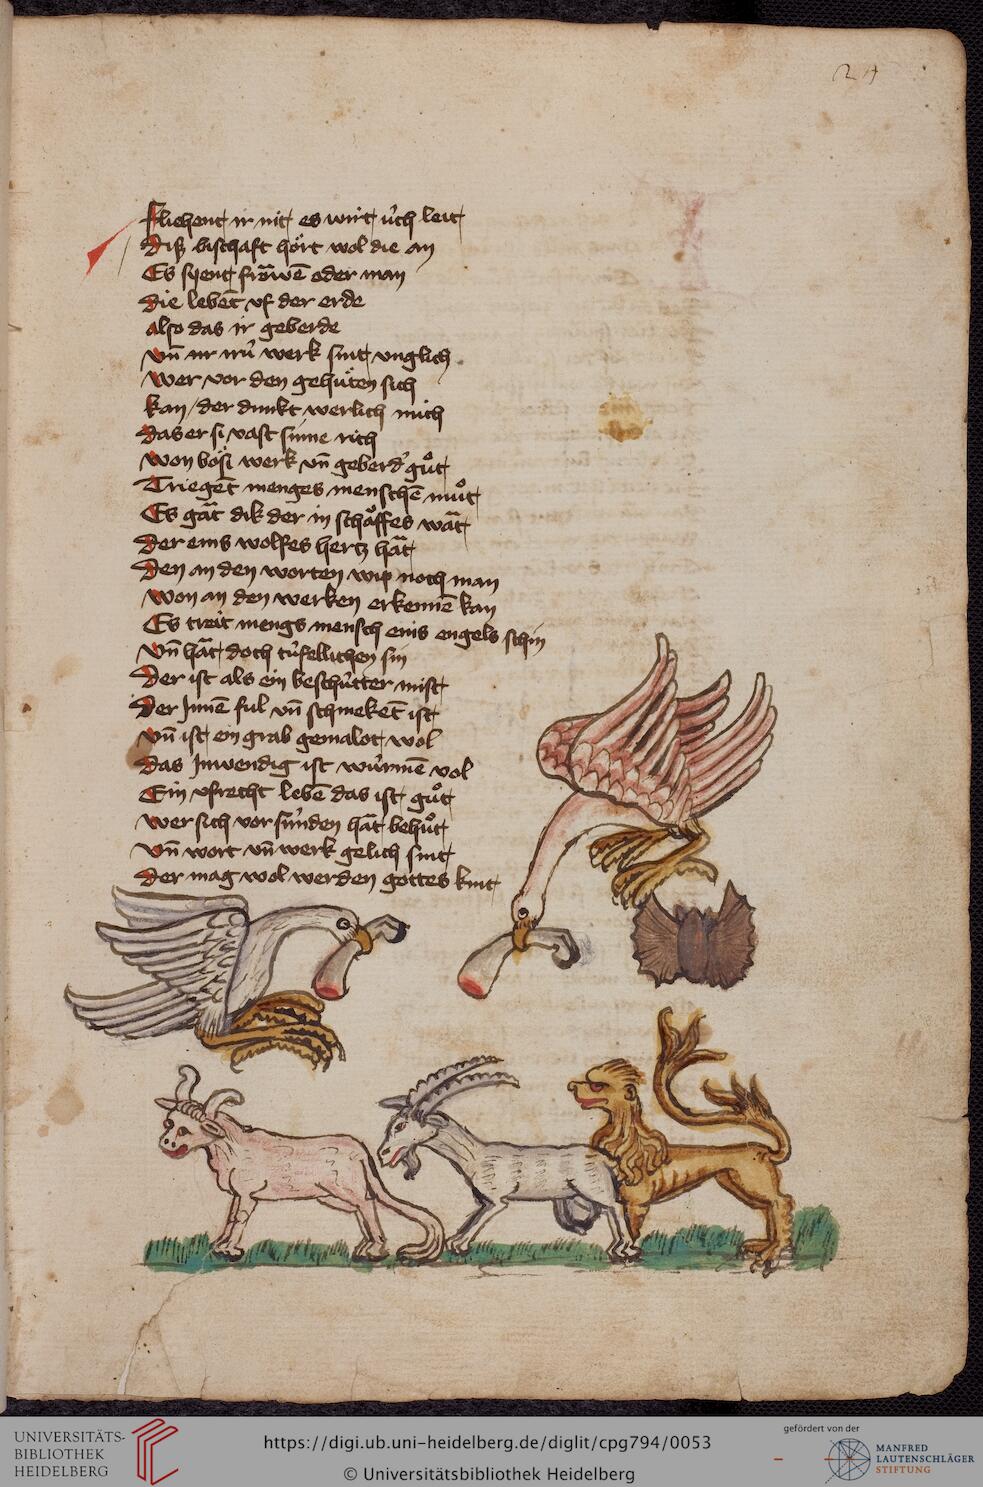 24
Fliehent ir nit es wirt v́ch leit
Disz bischaft hört wol die an
Es syent frăwē oder man
die lebēt vf der erde
also das ir geberde
vn̄ ir irú werk sint vnglich
wer vor den gehúten sich
kan / der dunkt werlich mich
das er si vast sinne rich
won bösi werk vn̄ geberd guͦt
Triegēt menges menschē muͦt
Es gāt dik der in schǎffes wāt
der eins wolfes hertz hāt
den an den worten wip noch man
won an den werken erkennē kan
Es treit mengs mensch eins engels schin
vn̄ hāt doch túfellichen sin
der ist als ein beschútter mist
der Innē ful vn̄ schmekēt ist
vn̄ ist ein grab gemalot wol
das Inwendig ist wúrmē vol
Ein vfrecht lebē das ist guͦt
wer sich vor súnden hāt behuͦt
vn̄ wort vn̄ werk gelich sint
der mag wol werden gottes kint
UNIVERSITÄTS-
BIBLIOTHEK
HEIDELBERG
https://digi.ub.uni-heidelberg.de/diglit/cpg794/0053
© Universitätsbibliothek Heidelberg
gefördert von der
MANFRED
LAUTENSCHLÄGER
STIFTUNG